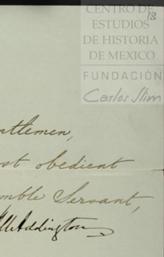 CENTRO DE
ESTUDIOS
DE HISTORIA
DE MEXICO
FUNDACIÓN
Carlos Slim
ntlemen,
ost obedient
mble Servant,
WAddington